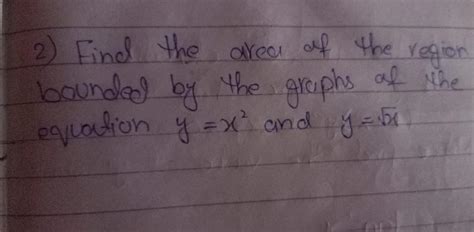 2) Find the area of the region
bounded by the graphs of the
equation y = x² and y = √x